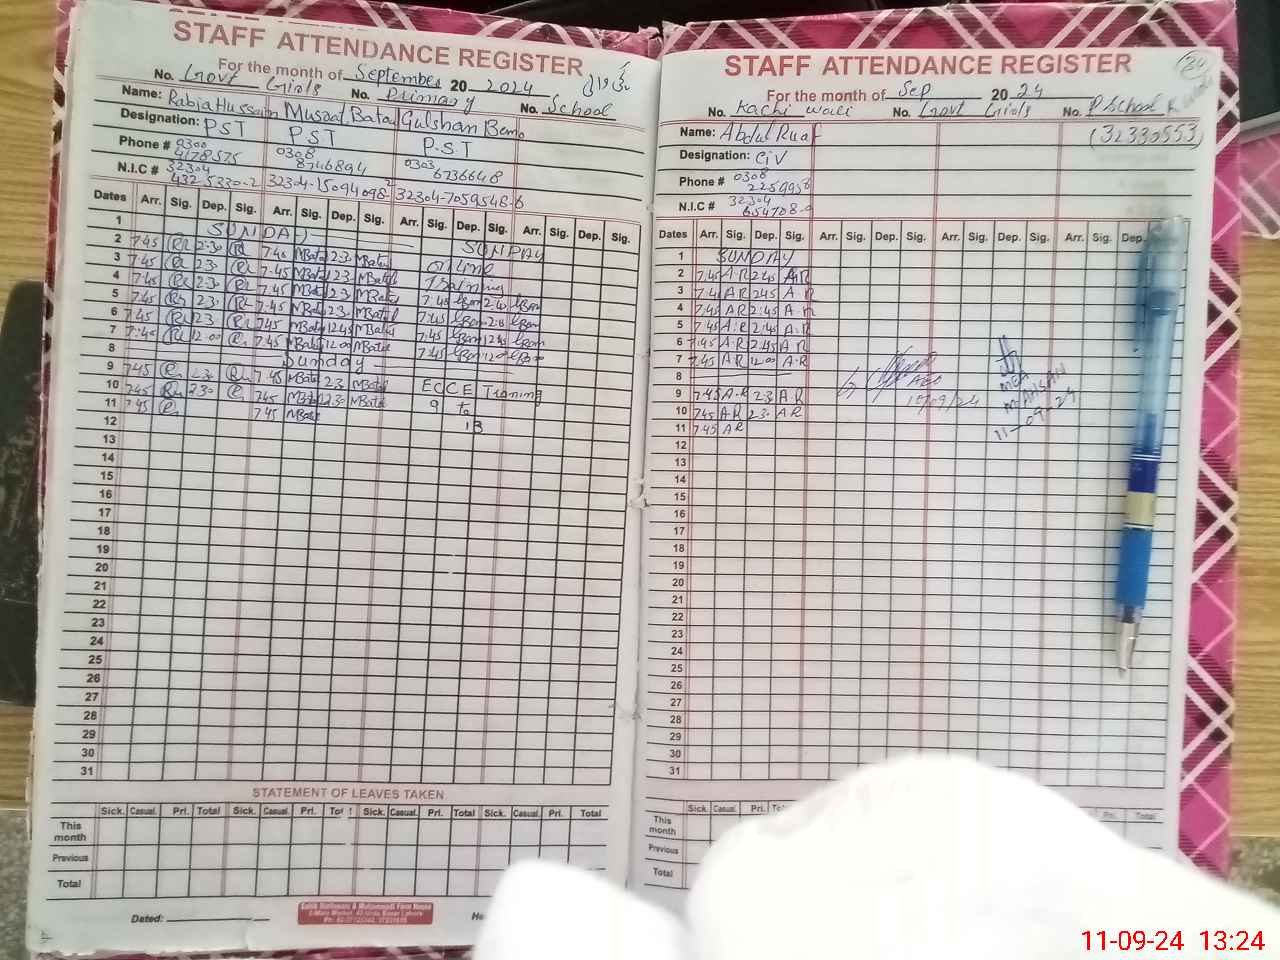 STAFF ATTENDANCE REGISTER
For the month of September 20 2024
No. Govt Girls No. Primary No. School
Name: Rabia Hussain Musrat Batol Gulshan Bano
Designation: PST PST P.ST
Phone # 0300 0308 0303
4178575 8746894 6736648
N.I.C # 32304
432-5330-2 32304-15094098-2 32304-7059548-6
Dates Arr. Sig. Dep. Sig. Arr. Sig. Dep. Sig. Arr. Sig. Dep. Sig. Arr. Sig. Dep. Sig.
1 SUNDAY SUNDAY
2 7.45 2:30 7.45 MBatul 2.3 MBatul Online
3 7.45 2.30 7.45 MBatul 2.3 MBatul Training
4 7.45 2.30 7.45 MBatul 2.3 MBatul 7:45 2:45
5 7.45 2.3 7.45 MBatul 2.3 MBatul 7:45
6 7.45 2.3 7.45 MBatul 12.45 MBatul 7.45 12.45
7 7.45 12.00 7.45 MBatul 12.00 MBatul 7.45 12.00
8 Sunday
9 7.45 2.30 7.45 MBatul 2.3 MBatul ECCE Traning
10 7.45 2.30 7.45 MBatul 2.30 MBatul 9 to
11 7.45 7.45 MBatul 13
12
13
14
15
16
17
18
19
20
21
22
23
24
25
26
27
28
29
30
31
STATEMENT OF LEAVES TAKEN
Sick. Casual. Pri. Total Sick. Casual. Pri. Total Sick. Casual. Pri. Total Sick. Casual. Pri. Total
This month
Previous
Total
Dated:
STAFF ATTENDANCE REGISTER
For the month of Sep 20 24
No. Kachi wali No. Govt Girls No. P School K wali
Name: Abdul Ruaf (32330553)
Designation: CIV
Phone # 0308
2259958
N.I.C # 32304
Dates Arr. Sig. Dep. Sig. Arr. Sig. Dep. Sig. Arr. Sig. Dep. Sig. Arr. Sig. Dep.
1 SUNDAY
2 7.45 A.R 2.45 A.R
3 7.45 A R 2.45 A.R
4 7.45 A R 2:45 A.R
5 7.45 A.R 2:45 A.R
6 7.45 A.R 2.45 A R
7 7.45 A R 12.00 A.R
8
9 7.45 A.R 2.3 A.R
10 7.45 A R 2.3 A R
11 7.45 AR
12
13
14
15
16
17
18
19
20
21
22
23
24
25
26
27
28
29
30
31
AEO
10/09/24
MEA
M-AHSAN
11-09-24
Sick. Casual. Pri. Pri. Total
This month
Previous
Total
11-09-24 13:24